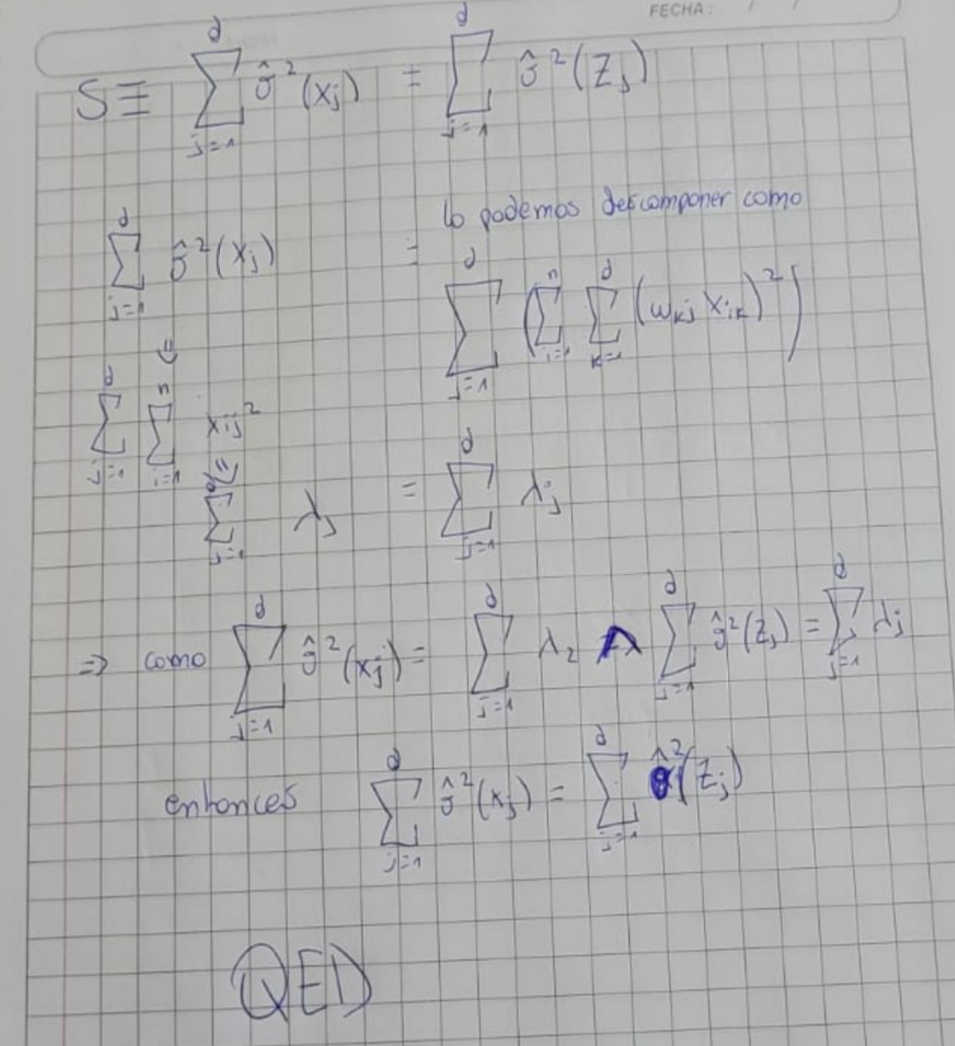 FECHA:
S ≡ ∑_{j=1}^{d} σ̂²(x_j) = ∑_{j=1}^{d} σ̂²(Z_j)
lo podemos descomponer como
∑_{j=1}^{d} σ̂²(x_j) = ∑_{j=1}^{d} (∑_{i=1}^{n} ∑_{k=1}^{d} (ω_{kj} x_{ik})²)
⇓
∑_{j=1}^{d} ∑_{i=1}^{n} x_{ij}²
⇓
∑_{j=1}^{d} λ_j = ∑_{j=1}^{d} λ_j
⇒ como ∑_{j=1}^{d} σ̂²(x_j) = ∑_{j=1}^{d} λ_2 ∧ ∑_{j=1}^{d} σ̂²(Z_j) = ∑_{j=1}^{d} λ_j
entonces ∑_{j=1}^{d} σ̂²(x_j) = ∑_{j=1}^{d} σ̂²(Z_j)
QED